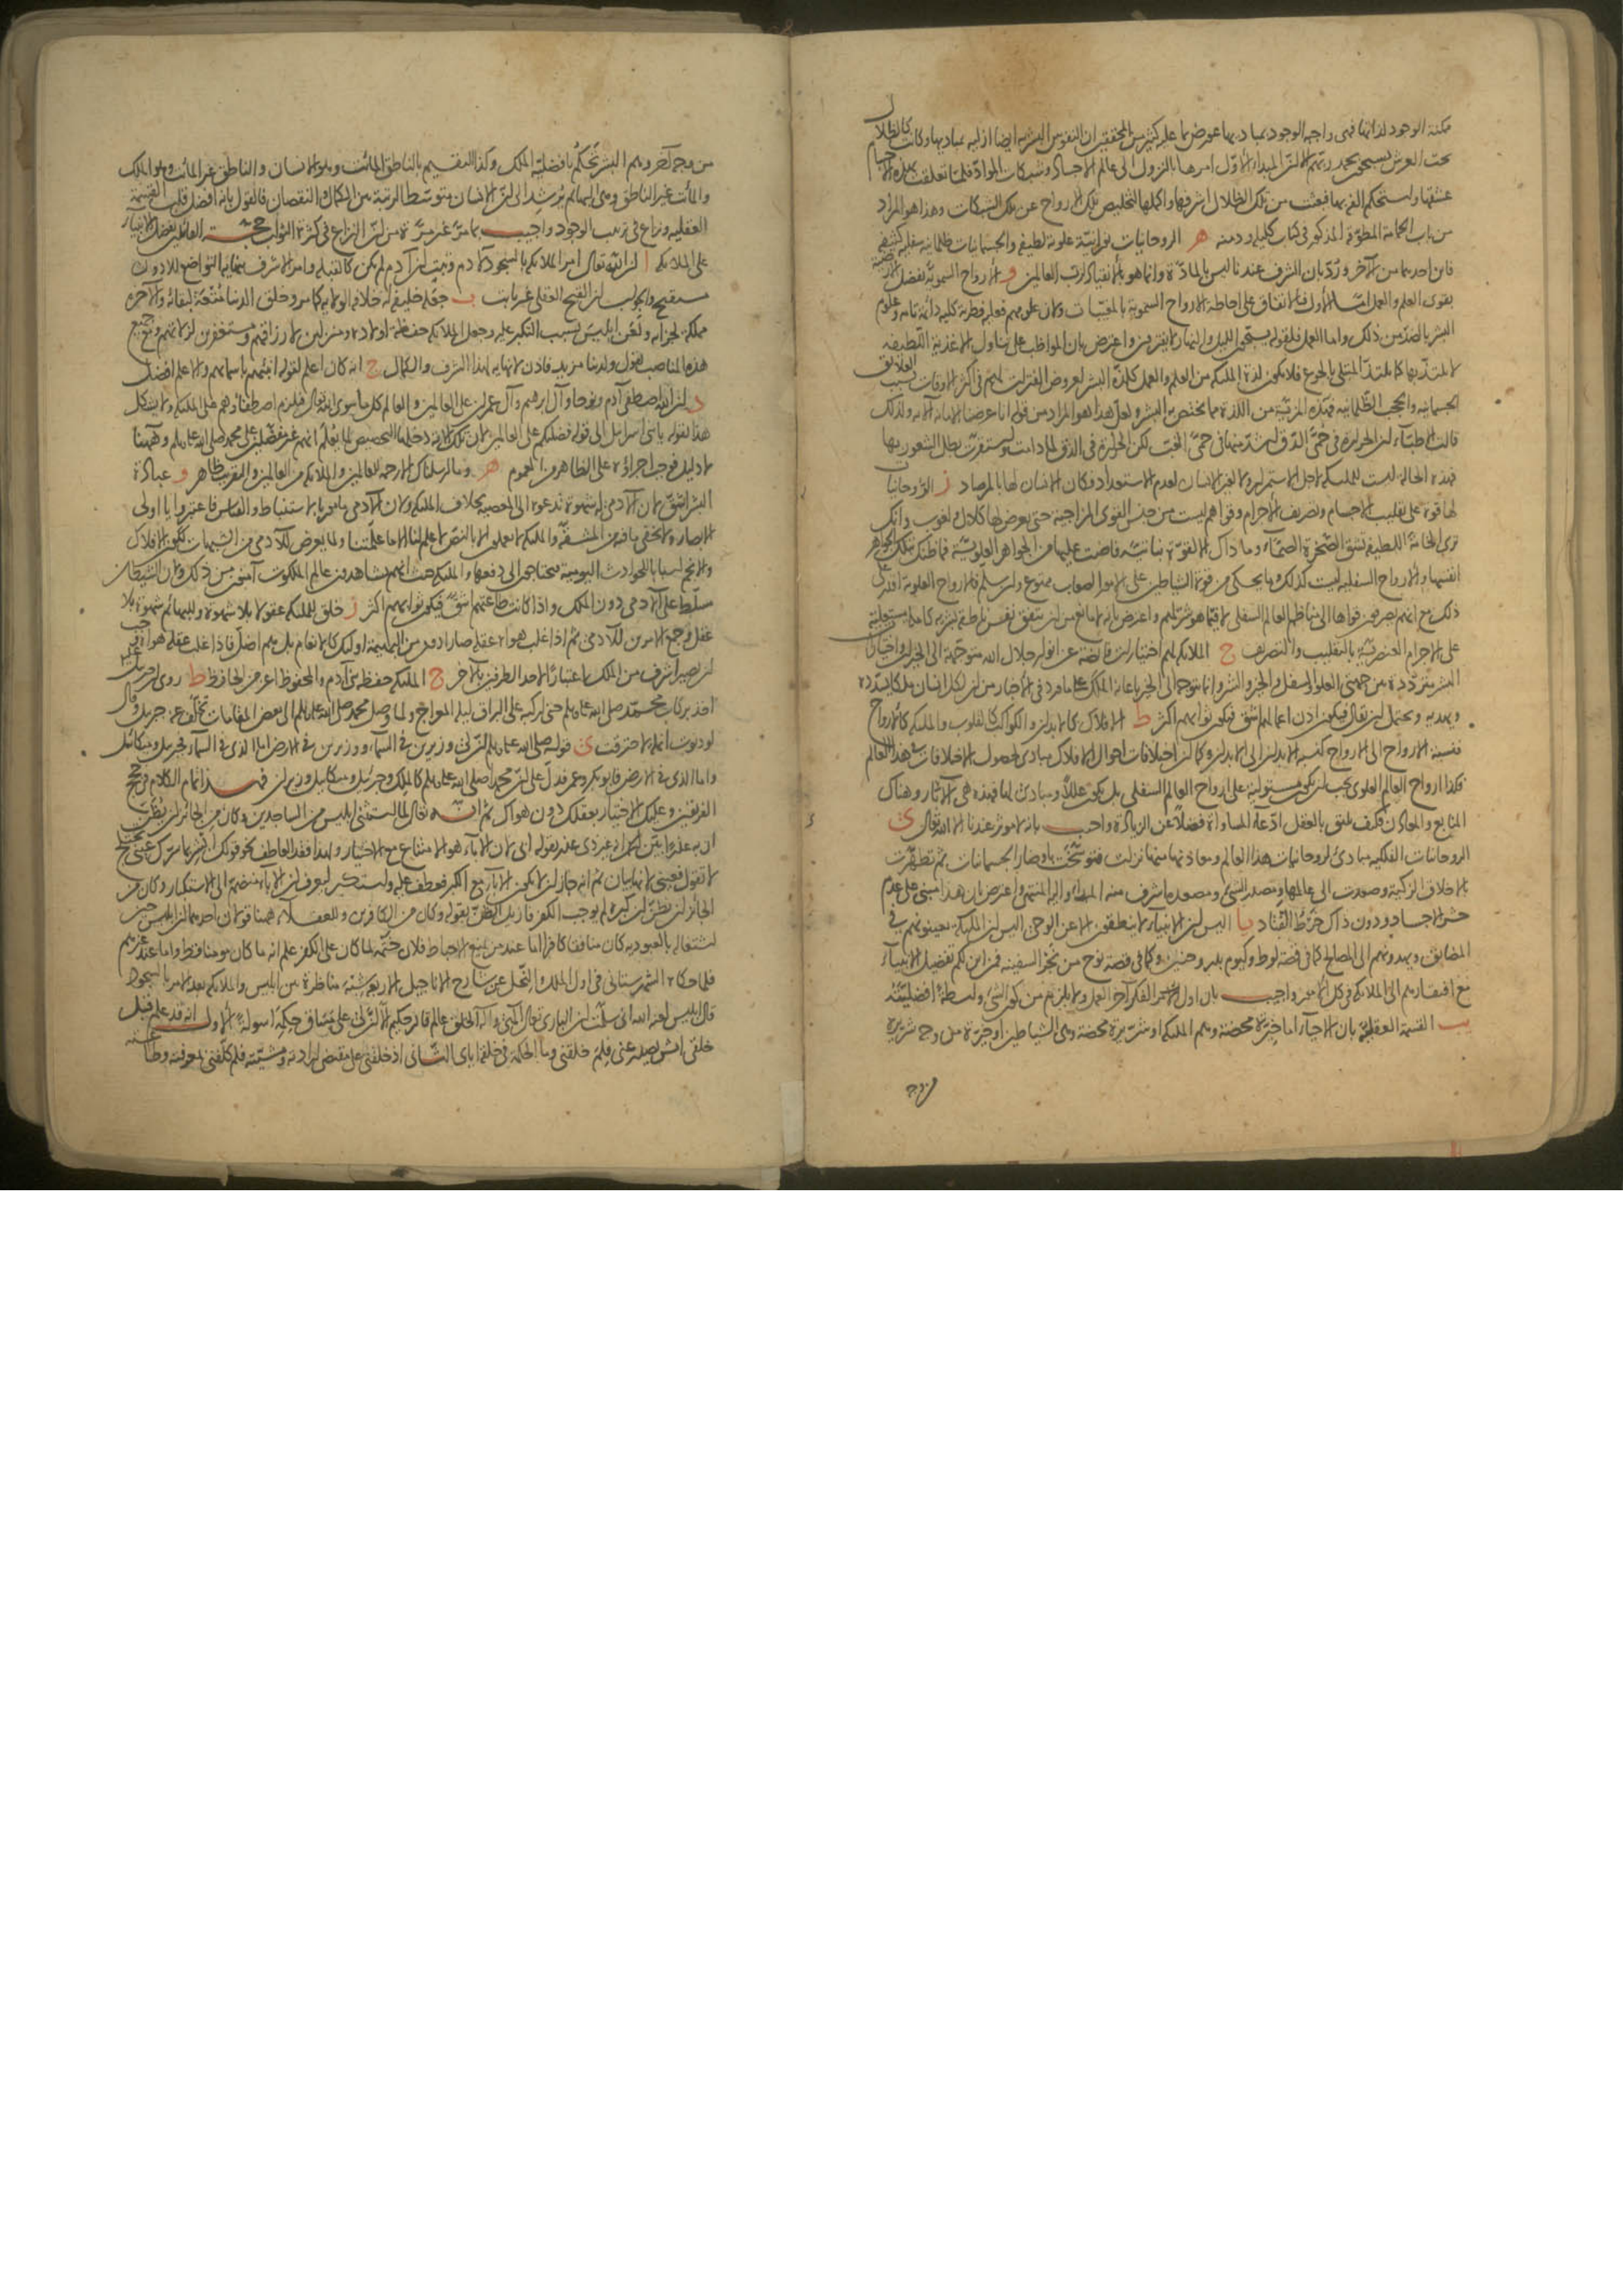 ممكنة الوجود لذاتها فهى واجبة الوجود بمباديها عورض بما عليه كثير من المحققين ان النفوس البشرية ايضا ازلية بمباديها وكانت كالظلال
تحت العرش يسبحون بحمد ربهم الا ان المبدأ الاول امرها بالنزول الى عالم الاجساد وشبكات المواد فلما تعلقت بهذه الاجسام
عشقتها واستحكم الفها بها فبعث من تلك الظلال اشرفها واكملها لتخليص تلك الارواح عن تلك الشبكات وهذا هو المراد
من باب الحمامة المطوقة المذكور فى كتاب كليلة ودمنة ه الروحانيات نورانية علوية لطيفة والجسمانيات ظلمانية سفلية كثيفة
فاين احدهما من الآخر ورد بان الشرف عندنا ليس بالمادة وانما هو بالانقياد لرب العالمين و الارواح السموية تفضل الارضية
بقوى العلم والعمل اما الاول فللاتفاق على احاطة الارواح السموية بالمغيبات ولان علومهم فعلية فطرية كلية دائمة تامة وعلوم
البشر بالضد من ذلك واما العمل فلقوله يسبحون الليل والنهار لا يفترون واعترض بان المواظب على تناول الاغذية اللطيفة
لا يلتذ بها كما يلتذ المبتلى بالجوع فلا يكون لذة الملئكة من العلم والعمل كلذة البشر لعروض الفترات لهم فى اكثر الاوقات بسبب العلائق
الجسمانية والحجب الظلمانية فهذه المزية من اللذة مما يختص بها البشر ولعل هذا هو المراد من قوله انا عرضنا الامانة الآية ولذلك
قالت الاطباء ان الحرارة فى حمى الدق اشد منها فى حمى الغب لكن الحرارة فى الدق لما دامت واستقرت بطل الشعور بها
فهذه الحالة ليست للملئكة لاجل الاستمرار ولا لغير الانسان لعدم الاستعداد فكان الانسان لها بالمرصاد ز الروحانيات
لها قوة على تقليب الاجسام وتصريف الاجرام وقواهم ليست من جنس القوى المزاجية حتى يعرض لها كلال ولغوب وانك
ترى الخامة اللطيفة تشق الصخرة الصماء وما ذاك الا لقوة نباتية فاضت عليها من الجواهر العلوية فما ظنك بتلك الجواهر
انفسها والارواح السفلية ليست كذلك وما يحكى من قوة الشياطين على الامور الصعاب ممنوع ولئن سلم فالارواح العلوية اقدر على
ذلك مع انهم يصرفون قواها الى مناظم العالم السفلى لا فيما هو شر لهم واعترض بانه لا مانع من ان يتفق نفس ناطقة بشرية كاملة مستعلية
على الاجرام العنصرية بالتقليب والتصريف ح الملائكة لهم اختيارات فائضة عن انوار جلال الله متوجهة الى الخير واختيارات
البشر مترددة من جهتى العلو والسفل والخير والشر وانما يتوجه الى الخير باعانة الملك على ما ورد فى الاخبار من ان لكل انسان ملكا يسدده
ويهديه ويحتمل ان يقال فيكون اذن اعمالهم اشق فيكون ثوابهم اكثر ط الافلاك كالابدان والكواكب كالقلوب والملئكة كالارواح
فنسبة الارواح الى الارواح كنسبة الابدان الى الابدان وكما ان اختلافات احوال الافلاك مبادى لحصول الاختلافات فى هذا العالم
فكذا ارواح العالم العلوى يجب ان تكون مستولية على ارواح العالم السفلى بل تكون عللا ومبادئ لها فهذه هى الآثار وهناك
المنابع والمعادن فكيف يليق بالعقل ادعاء المساواة فضلا عن الزيادة واجيب بانه لا مؤثر عندنا الا الله تعالى ى
الروحانيات الفلكية مبادئ لروحانيات هذا العالم ومعاد لها منها نزلت فتوسخت باوضار الجسمانيات ثم تطهرت
بالاخلاق الزكية وصعدت الى عالمها ومصدر الشئ ومصعده اشرف منه المبدأ واليه المنتهى واعترض بان هذا مبنى على عدم
حشر الاجساد ودون ذاك خرط القتاد يا اليس ان الانبياء لا ينطقون الا عن الوحى اليس ان الملئكة يعينونهم فى
المضائق ويهدونهم الى المصالح كما فى قصة لوط وكيوم بدر وحنين وكما فى قصة نوح من نجر السفينة فمن اين لكم تفضيل الانبياء
مع افتقارهم الى الملائكة فى كل الامور واجيب بان اول الفكر آخر العمل ولا يلزم من كون الشئ واسطة افضليته
يب القسمة العقلية بان الاحياء اما خيرة محضة وهم الملئكة او شريرة محضة وهى الشياطين او خيرة من وجه شريرة
من وجه
من وجه آخر وهم البشر تحكم بافضلية الملك وكذا التقسيم بالناطق المائت وهو الانسان والناطق غير المائت وهو الملك
والمائت غير الناطق وهى البهائم يرشد الى ان الانسان متوسط الرتبة من الكمال والنقصان فالقول بانه افضل قلب القسمة
العقلية ونزاع فى ترتيب الوجود واجيب بما مر غير مرة من ان النزاع فى كثرة الثواب حجة القائلين بفضل الانبياء
على الملائكة ا ان الله تعالى امر الملائكة بالسجود لآدم وثبت ان آدم لم يكن كالقبلة وامر الاشرف بنهاية التواضع للادون
مستقبح والجواب ان القبح العقلى غير ثابت ب جعله خليفة له خلافة الولاية كما مر وخلق الدنيا متعة لبقائه والآخرة
مملكة لجزائه ولعن ابليس بسبب التكبر عليه وجعل الملائكة حفظة لاولاده ومنزلين لارزاقهم ومستغفرين لزلاتهم ومع جميع
هذه المناصب يقول ولدينا مزيد فاذن لا نهاية لهذا الشرف والكمال ج انه كان اعلم لقوله انبئهم باسمائهم والاعلم افضل
د ان الله اصطفى آدم ونوحا وآل ابرهيم وآل عمران على العالمين والعالم كل ما سوى الله تعالى فيلزم اصطفاؤهم على الملئكة ولا يشكل
هذا بقوله يا بنى اسرائيل الى قوله فضلتكم على العالمين لان تلك الآية دخلها التخصيص لما يعلم انهم غير مفضلين على محمد صلى الله عليه وسلم وههنا
لا دليل فوجب اجراؤه على الظاهر من العموم ه وما ارسلناك الا رحمة للعالمين والملائكة من العالمين والتقريب ظاهر و عبادة
البشر اشق لان الآدمى له شهوة تدعوه الى المعصية بخلاف الملئكة ولان الآدمى مامور بالاستنباط والقياس فاعتبروا يا اولى
الابصار ولا يخفى ما فيه من المشقة والملئكة لا يعملون الا بالنص لا علم لنا الا ما علمتنا ولما يعرض للآدمى من الشبهات ككون الافلاك
والانجم اسبابا للحوادث اليومية فيحتاجون الى دفعها والملئكة حيث انهم شاهدون عالم الملكوت آمنون من ذلك ولان الشيطان
سلط على الآدمى دون الملك واذا كانت طاعتهم اشق فيكون ثوابهم اكثر ز خلق للملئكة عقولا بلا شهوة وللبهائم شهوة بلا
عقل وجمع الامرين للآدمى ثم اذا غلب هواه عقله صار ادون من البهيمة اولئك كالانعام بل هم اضل فاذا غلب عقله هواه وجب
ان يصير اشرف من الملك اعتبارا لاحد الطرفين بالآخر ح الملئكة حفظة بنى آدم والمحفوظ اعز من الحافظ ط روى ان جبريل
اخذ بركاب محمد صلى الله عليه وسلم حتى اركبه على البراق ليلة المعراج ولما وصل محمد صلى الله عليه وسلم الى بعض المقامات تخلف عنه جبريل وقال
لو دنوت انملة لاحترقت ى قوله صلى الله عليه وسلم ان لى وزيرين فى السماء ووزيرين فى الارض اما الذى فى السماء فجبريل وميكائيل
واما الذى فى الارض فابو بكر وعمر فدل على ان محمدا صلى الله عليه وسلم كالملك وجبرئيل وميكائيل وزيران فهذا تمام الكلام فى حجج
الفريقين وعليك الاختيار بعقلك دون هواك ثم انه تعالى لما استثنى ابليس من الساجدين وكان من الجائز ان يظن
الجائز ان يظن ان كبره لم يوجب الكفر فازيل الظن بقوله وكان من الكافرين وللعقلاء ههنا قولان احدهما ان ابليس حين
اشتغاله بالعبودية كان منافقا كافرا اما عند من يمنع الاحباط فلان ختمه لما كان على الكفر علم انه ما كان مومنا قط واما عند غيرهم
فلما حكاه الشهرستانى فى اول الملل والنحل عن شارح الاناجيل الاربعة شبه مناظرة بين ابليس والملائكة بعد الامر بالسجود
قال ابليس لعنه الله انى سلمت ان البارى تعالى الهى واله الخلق عالم قادر حكيم الا ان لى على مساق حكمته اسولة الاول انه قد علم قبل
خلقى ايش يصدر عنى فلم خلقنى وما الحكمة فى خلقه اياى الثانى اذ خلقنى على مقتضى ارادته ومشيته فلم كلفنى بمعرفته وطاعته